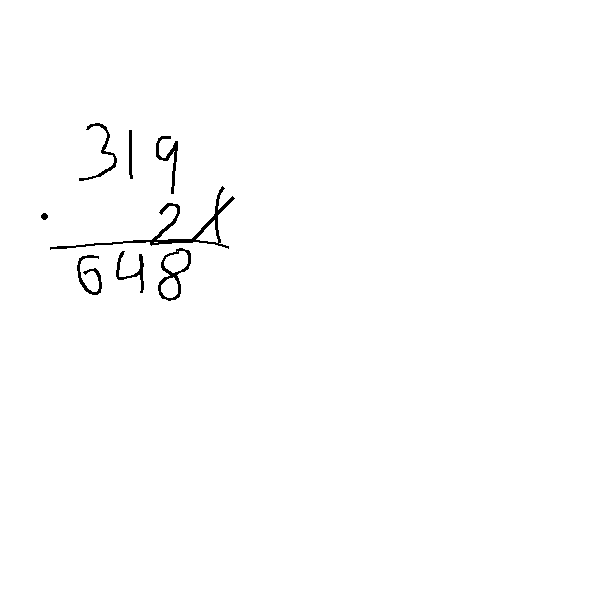 319
2 x
648